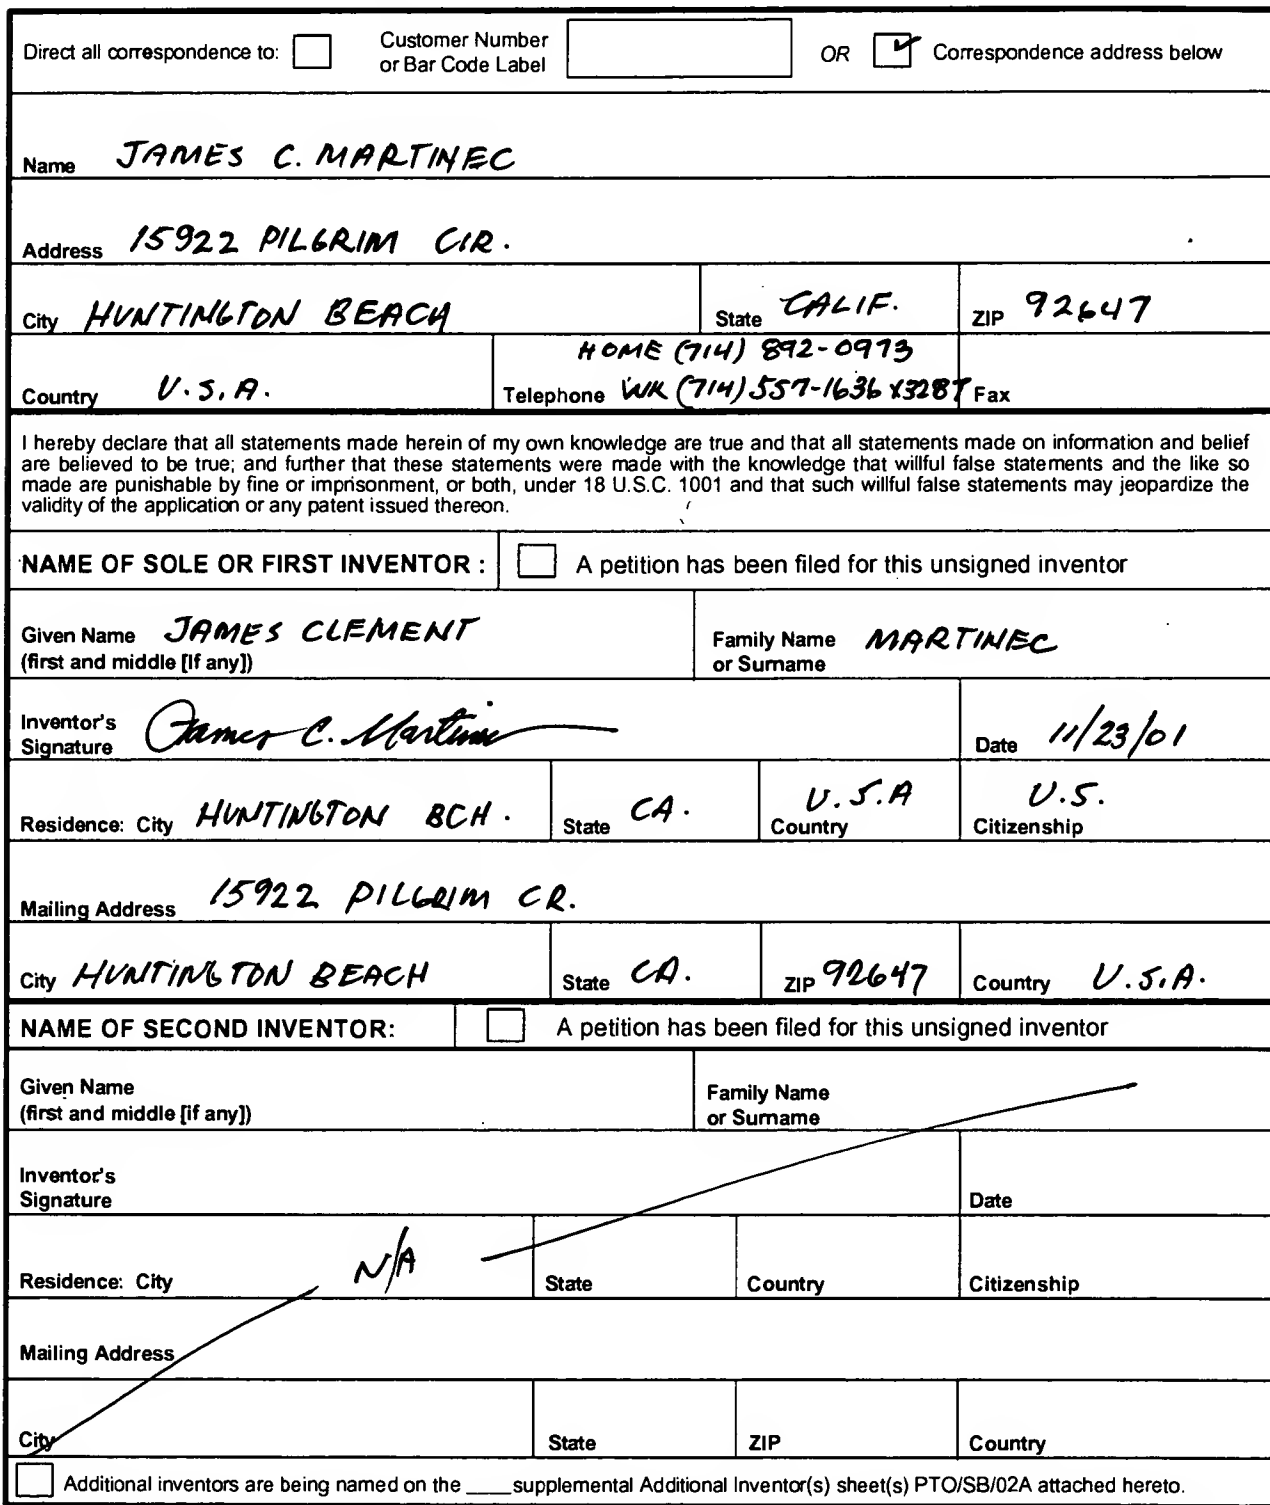 Direct all correspondence to: Customer Number or Bar Code Label OR ✓ Correspondence address below
Name JAMES C. MARTINEC
Address 15922 PILGRIM CIR.
City HUNTINGTON BEACH State CALIF. ZIP 92647
HOME (714) 892-0973
Country U.S.A. Telephone WK (714) 557-1636 X3287 Fax
I hereby declare that all statements made herein of my own knowledge are true and that all statements made on information and belief
are believed to be true; and further that these statements were made with the knowledge that willful false statements and the like so
made are punishable by fine or imprisonment, or both, under 18 U.S.C. 1001 and that such willful false statements may jeopardize the
validity of the application or any patent issued thereon.
NAME OF SOLE OR FIRST INVENTOR : A petition has been filed for this unsigned inventor
Given Name JAMES CLEMENT Family Name MARTINEC
(first and middle [If any]) or Surname
Inventor's
Signature James C. Martinec Date 11/23/01
Residence: City HUNTINGTON BCH. State CA. Country U.S.A Citizenship U.S.
Mailing Address 15922 PILGRIM CR.
City HUNTINGTON BEACH State CA. ZIP 92647 Country U.S.A.
NAME OF SECOND INVENTOR: A petition has been filed for this unsigned inventor
Given Name Family Name
(first and middle [if any]) or Surname
Inventor's
Signature Date
Residence: City N/A State Country Citizenship
Mailing Address
City State ZIP Country
Additional inventors are being named on the ____supplemental Additional Inventor(s) sheet(s) PTO/SB/02A attached hereto.